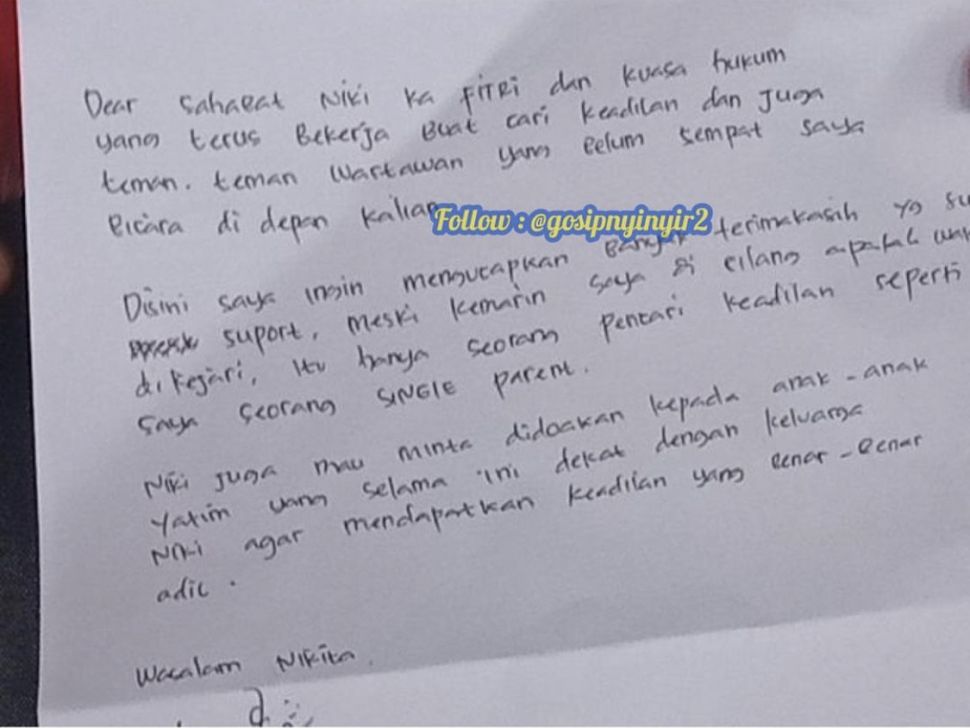 Dear Sahabat Niki ka FITRI dan kuasa hukum
yang terus Bekerja Buat cari keadilan dan Juga
teman. teman Wartawan yang Belum sempat saya
Bicara di depan kalian
Follow : @gosipnyinyir2
Disini saya ingin mengucapkan Banyak terimakasih yg su
suport, meski kemarin saya di Bilang apakah
di kejari, itu hanya seorang pencari keadilan seperti
saya seorang SINGLE parent.
Niki juga mau minta didoakan kepada anak-anak
yatim yang selama ini dekat dengan keluarga
Niki agar mendapatkan keadilan yang Benar-Benar
adil.
Wasalam Nikita